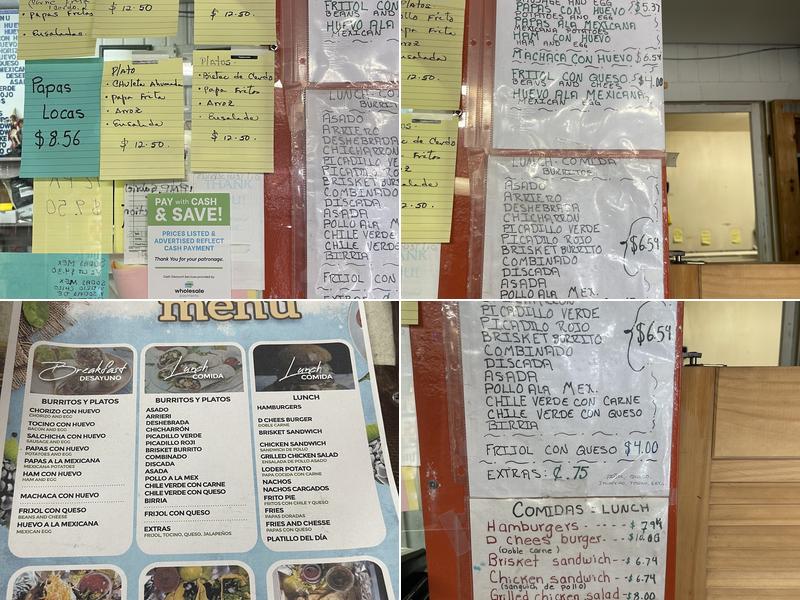 $ 12.50
• Papas Fritas
• Ensaladas
$ 12.50
Papas
Locas
$8.56
Plato
• Chuleta Ahumada
• Papa Frita
• Arroz
• Ensalada
$ 12.50.
Platos:
• Bistec de Cerdo
• Papa Fritas
• Arroz
• Ensalada
$ 12.50.
PAY with CASH
& SAVE!
PRICES LISTED &
ADVERTISED REFLECT
CASH PAYMENT
Thank You for your patronage.
Cash Discount Services provided by
wholesale
payments
FRIJOL CON
BEANS AND
HUEVO ALA
MEXICAN
LUNCH-CO
BURRIT
ASADO
ARRIERO
DESHEBRADA
CHICHARRON
PICADILLO VE
PICADILLO RO
BRISKET BURR
COMBINADO
DISCADA
ASADA
POLLO ALA M
CHILE VERDE
CHILE VERDE
BIRRIA
FRIJOL CON
SAUSAGE AND EGG
PAPAS CON HUEVO $5.37
POTATOES AND EGG
PAPAS ALA MEXICANA
MEXICANA POTATOES
HAM CON HUEVO
HAM AND EGG
MACHACA CON HUEVO $6.54
FRIJOL CON QUESO $4.00
BEANS AND CHEES
HUEVO ALA MEXICANA
MEXICAN EGG
LUNCH-COMIDA
BURRITOS
ASADO
ARRIERO
DESHEBRADA
CHICHARRON
PICADILLO VERDE
PICADILLO ROJO
BRISKET BURRITO
COMBINADO
DISCADA
ASADA
POLLO ALA MEX.
$6.59
ollo Frito
Ensalada
12.50.
c de Cerdo
Fritas
12.50.
menu
Breakfast
DESAYUNO
BURRITOS Y PLATOS
CHORIZO CON HUEVO
CHORIZO AND EGG
TOCINO CON HUEVO
BACON AND EGG
SALCHICHA CON HUEVO
SAUSAGE AND EGG
PAPAS CON HUEVO
POTATOES AND EGG
PAPAS A LA MEXICANA
MEXICANA POTATOES
HAM CON HUEVO
HAM AND EGG
MACHACA CON HUEVO
FRIJOL CON QUESO
BEANS AND CHEESE
HUEVO A LA MEXICANA
MEXICAN EGG
Lunch
COMIDA
BURRITOS Y PLATOS
ASADO
ARRIERI
DESHEBRADA
CHICHARRÓN
PICADILLO VERDE
PICADILLO ROJO
BRISKET BURRITO
COMBINADO
DISCADA
ASADA
POLLO A LA MEX
CHILE VERDE CON CARNE
CHILE VERDE CON QUESO
BIRRIA
FRIJOL CON QUESO
EXTRAS
FRIJOL, TOCINO, QUESO, JALAPEÑOS
Lunch
COMIDA
LUNCH
HAMBURGERS
D CHEES BURGER
DOBLE CARNE
BRISKET SANDWICH
CHICKEN SANDWICH
SANDWICH DE POLLO
GRILLED CHICKEN SALAD
ENSALADA DE POLLO ASADO
LODER POTATO
PAPA COCIDA CON CARNE
NACHOS
NACHOS CARGADOS
FRITO PIE
FRITOS CON CHILE Y QUESO
FRIES
PAPAS DORADAS
FRIES AND CHESSE
PAPAS CON QUESO
PLATILLO DEL DÍA
PICADILLO VERDE
PICADILLO ROJO
BRISKET BURRITO
COMBINADO
DISCADA
ASADA
POLLO ALA MEX.
CHILE VERDE CON CARNE
CHILE VERDE CON QUESO
BIRRIA
$6.59
FRIJOL CON QUESO $4.00
EXTRAS: ¢.75
COMIDAS - LUNCH
Hamburgers ----- $ 7.94
D chees burger --
(Doble carne)
Brisket sandwich --$ 6.74
Chicken sandwich --$ 6.74
(sandwich de pollo)
Grilled chicken salad -$8.00